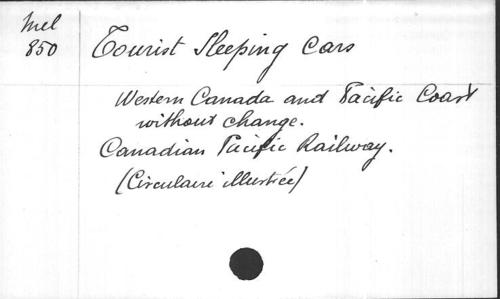 Mel
850
Tourist Sleeping Cars
Western Canada and Pacific Coast
without change.
Canadian Pacific Railway.
(Circulaire illustrée)